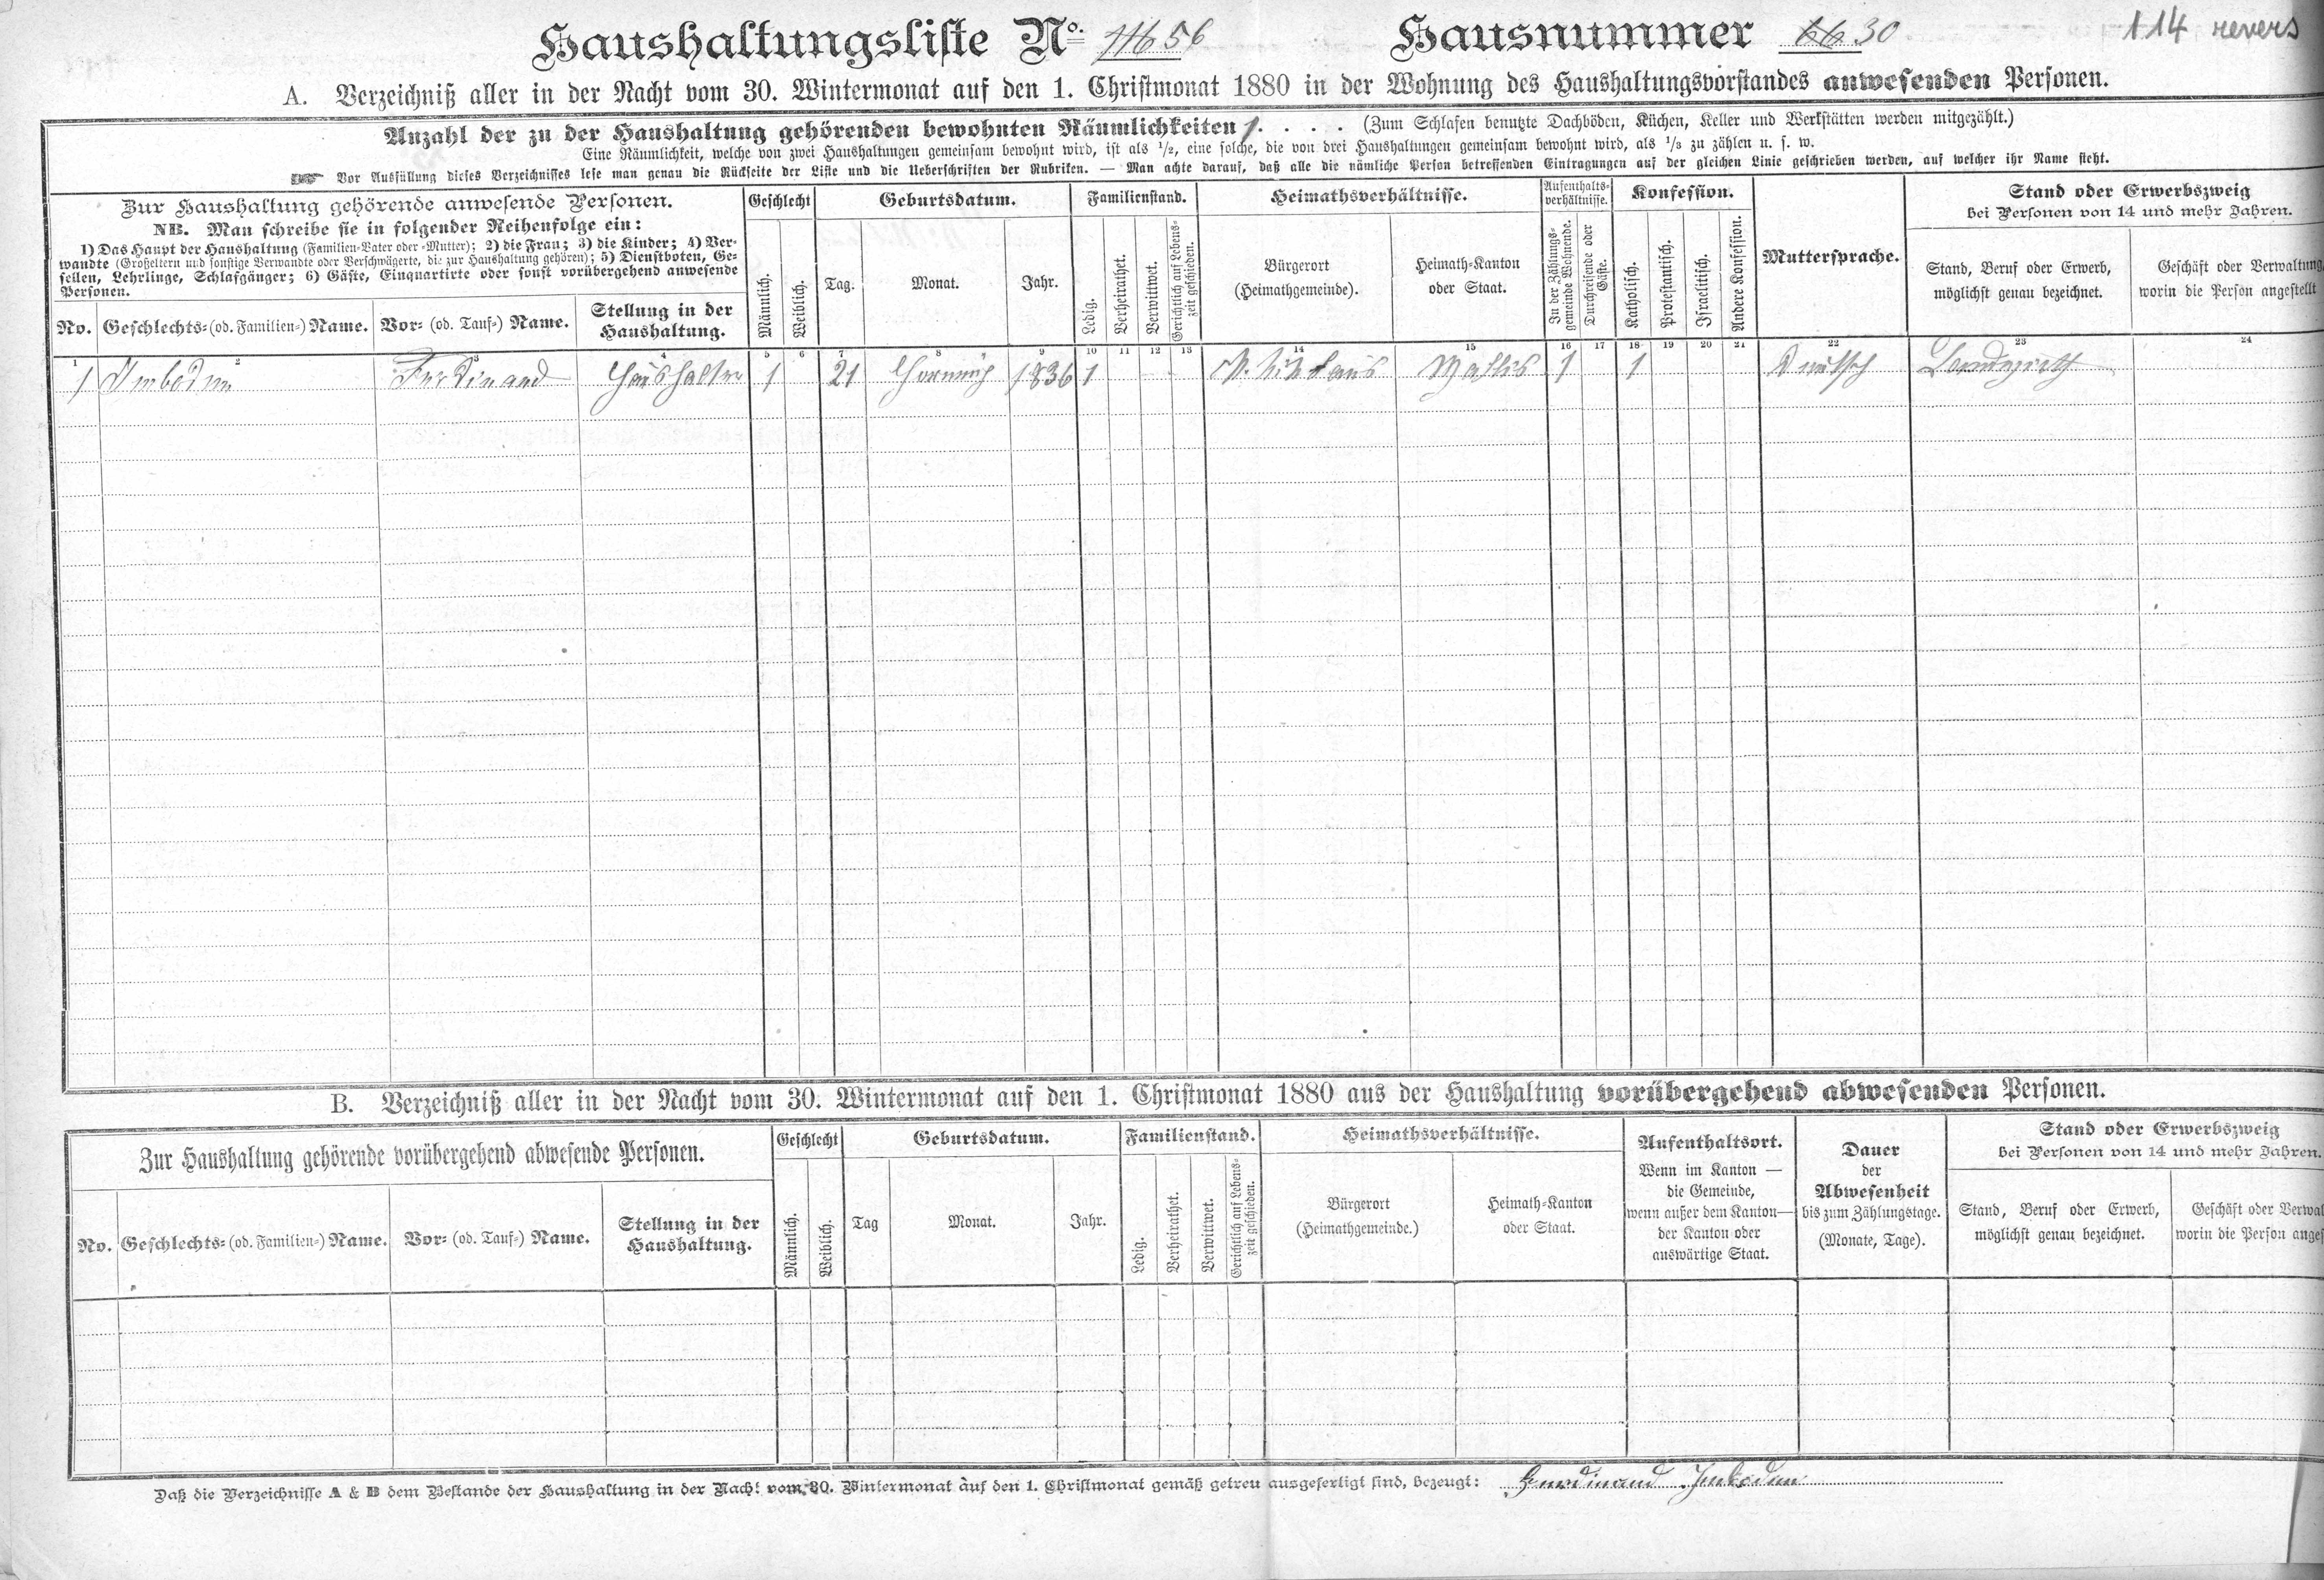 Haushaltungsliste No. 116 56 Hausnummer 66 30 114 revers
A. Verzeichniß aller in der Nacht vom 30. Wintermonat auf den 1. Christmonat 1880 in der Wohnung des Haushaltungsvorstandes anwesenden Personen.
Anzahl der zu der Haushaltung gehörenden bewohnten Räumlichkeiten 1. . . . . (Zum Schlafen benutzte Dachböden, Küchen, Keller und Werkstätten werden mitgezählt.)
Eine Räumlichkeit, welche von zwei Haushaltungen gemeinsam bewohnt wird, ist als 1/2, eine solche, die von drei Haushaltungen gemeinsam bewohnt wird, als 1/3 zu zählen u. s. w.
☞ Vor Ausfüllung dieses Verzeichnisses lese man genau die Rückseite der Liste und die Ueberschriften der Rubriken. — Man achte darauf, daß alle die nämliche Person betreffenden Eintragungen auf der gleichen Linie geschrieben werden, auf welcher ihr Name steht.
Zur Haushaltung gehörende anwesende Personen.
NB. Man schreibe sie in folgender Reihenfolge ein:
1) Das Haupt der Haushaltung (Familien-Vater oder -Mutter); 2) die Frau; 3) die Kinder; 4) Ver-
wandte (Großeltern und sonstige Verwandte oder Verschwägerte, die zur Haushaltung gehören); 5) Dienstboten, Ge-
sellen, Lehrlinge, Schlafgänger; 6) Gäste, Einquartirte oder sonst vorübergehend anwesende
Personen.
No. Geschlechts- (od. Familien-) Name. Vor- (od. Tauf-) Name. Stellung in der
Haushaltung.
Geschlecht
Männlich.
Weiblich.
Geburtsdatum.
Tag. Monat. Jahr.
Familienstand.
Ledig.
Verheirathet.
Verwittwet.
Gerichtlich auf Lebens-
zeit geschieden.
Heimathsverhältnisse.
Bürgerort
(Heimathgemeinde).
Heimath-Kanton
oder Staat.
Aufenthalts-
verhältnisse.
In der Zählungs-
gemeinde Wohnende.
Durchreisende oder
Gäste.
Konfession.
Katholisch.
Protestantisch.
Israelitisch.
Andere Konfession.
Muttersprache.
Stand oder Erwerbszweig
bei Personen von 14 und mehr Jahren.
Stand, Beruf oder Erwerb,
möglichst genau bezeichnet.
Geschäft oder Verwaltung,
worin die Person angestellt
1 2 3 4 5 6 7 8 9 10 11 12 13 14 15 16 17 18 19 20 21 22 23 24
1 Imboden Ferdinand Haushalter 1 21 Hornung 1836 1 St. Niklaus Wallis 1 1 Deutsch Landwirth
B. Verzeichniß aller in der Nacht vom 30. Wintermonat auf den 1. Christmonat 1880 aus der Haushaltung vorübergehend abwesenden Personen.
Zur Haushaltung gehörende vorübergehend abwesende Personen.
No. Geschlechts- (od. Familien-) Name. Vor- (od. Tauf-) Name. Stellung in der
Haushaltung.
Geschlecht
Männlich.
Weiblich.
Geburtsdatum.
Tag Monat. Jahr.
Familienstand.
Ledig.
Verheirathet.
Verwittwet.
Gerichtlich auf Lebens-
zeit geschieden.
Heimathsverhältnisse.
Bürgerort
(Heimathgemeinde.)
Heimath-Kanton
oder Staat.
Aufenthaltsort.
Wenn im Kanton —
die Gemeinde,
wenn außer dem Kanton—
der Kanton oder
auswärtige Staat.
Dauer
der
Abwesenheit
bis zum Zählungstage.
(Monate, Tage).
Stand oder Erwerbszweig
bei Personen von 14 und mehr Jahren.
Stand, Beruf oder Erwerb,
möglichst genau bezeichnet.
Geschäft oder Verwal
worin die Person anges
Daß die Verzeichnisse A & B dem Bestande der Haushaltung in der Nacht vom 30. Wintermonat auf den 1. Christmonat gemäß getreu ausgefertigt sind, bezeugt: Ferdinand Imboden